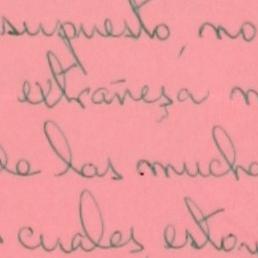 supuesto, no
extrañeza
de las mucha
cuales esto